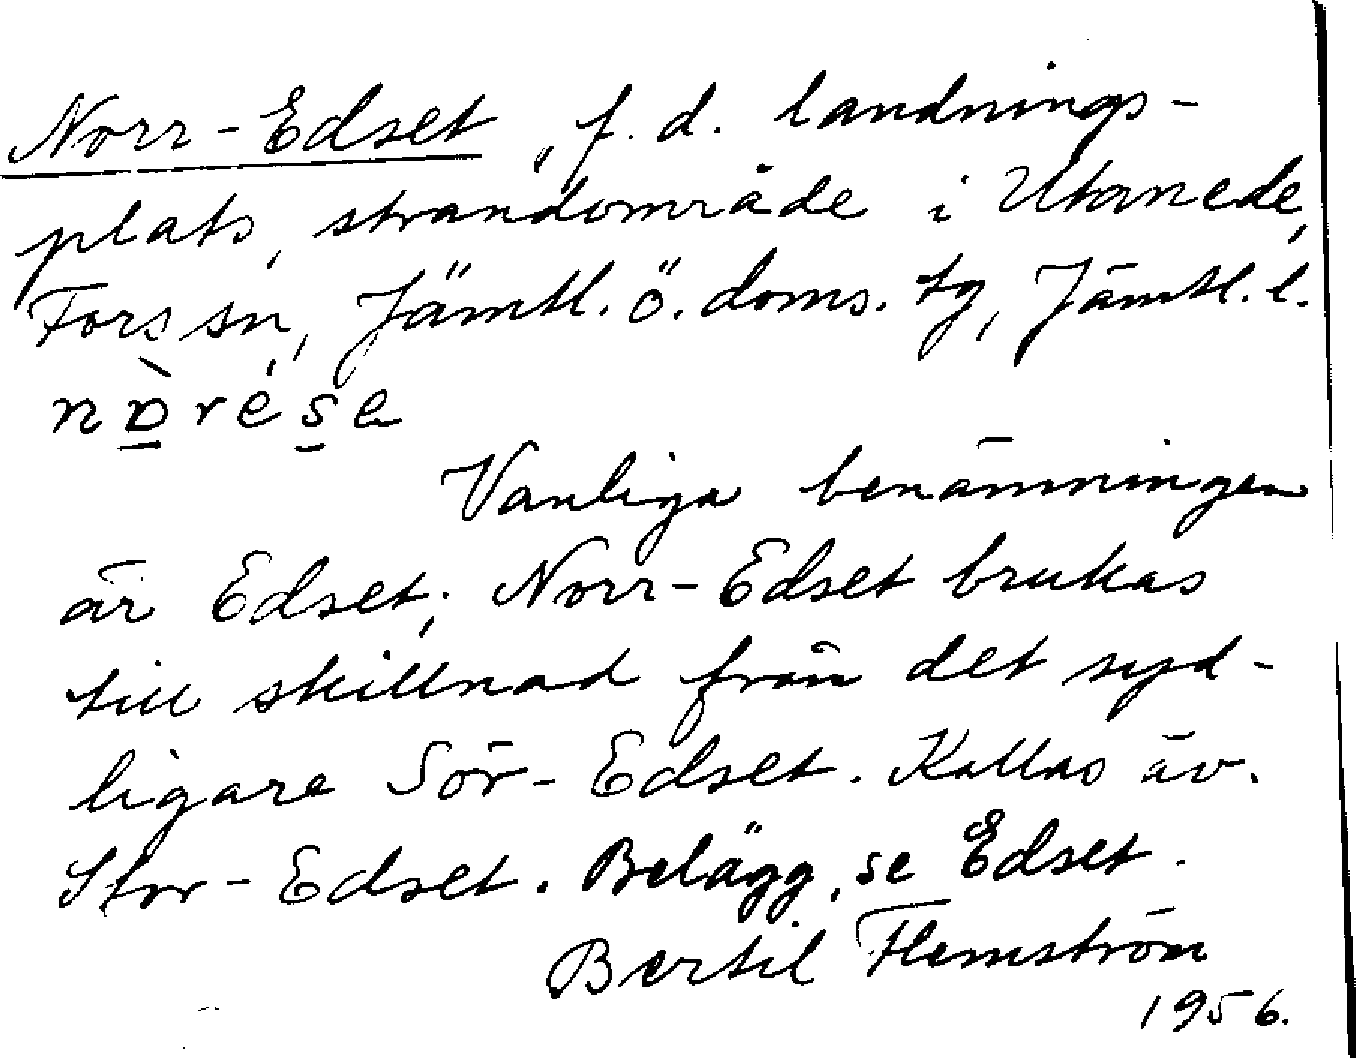 Norr-Edset, f.d. landnings-
plats, strandområde i Utanede,
Fors sn, Jämtl. ö. doms. tg, Jämtl. l.
Vanliga benämningen
är Edset; Norr-Edset brukas
till skillnad från det syd-
ligare Sör-Edset. Kallas äv.
Stor-Edset. Belägg, se Edset.
Bertil Flemström
1956.